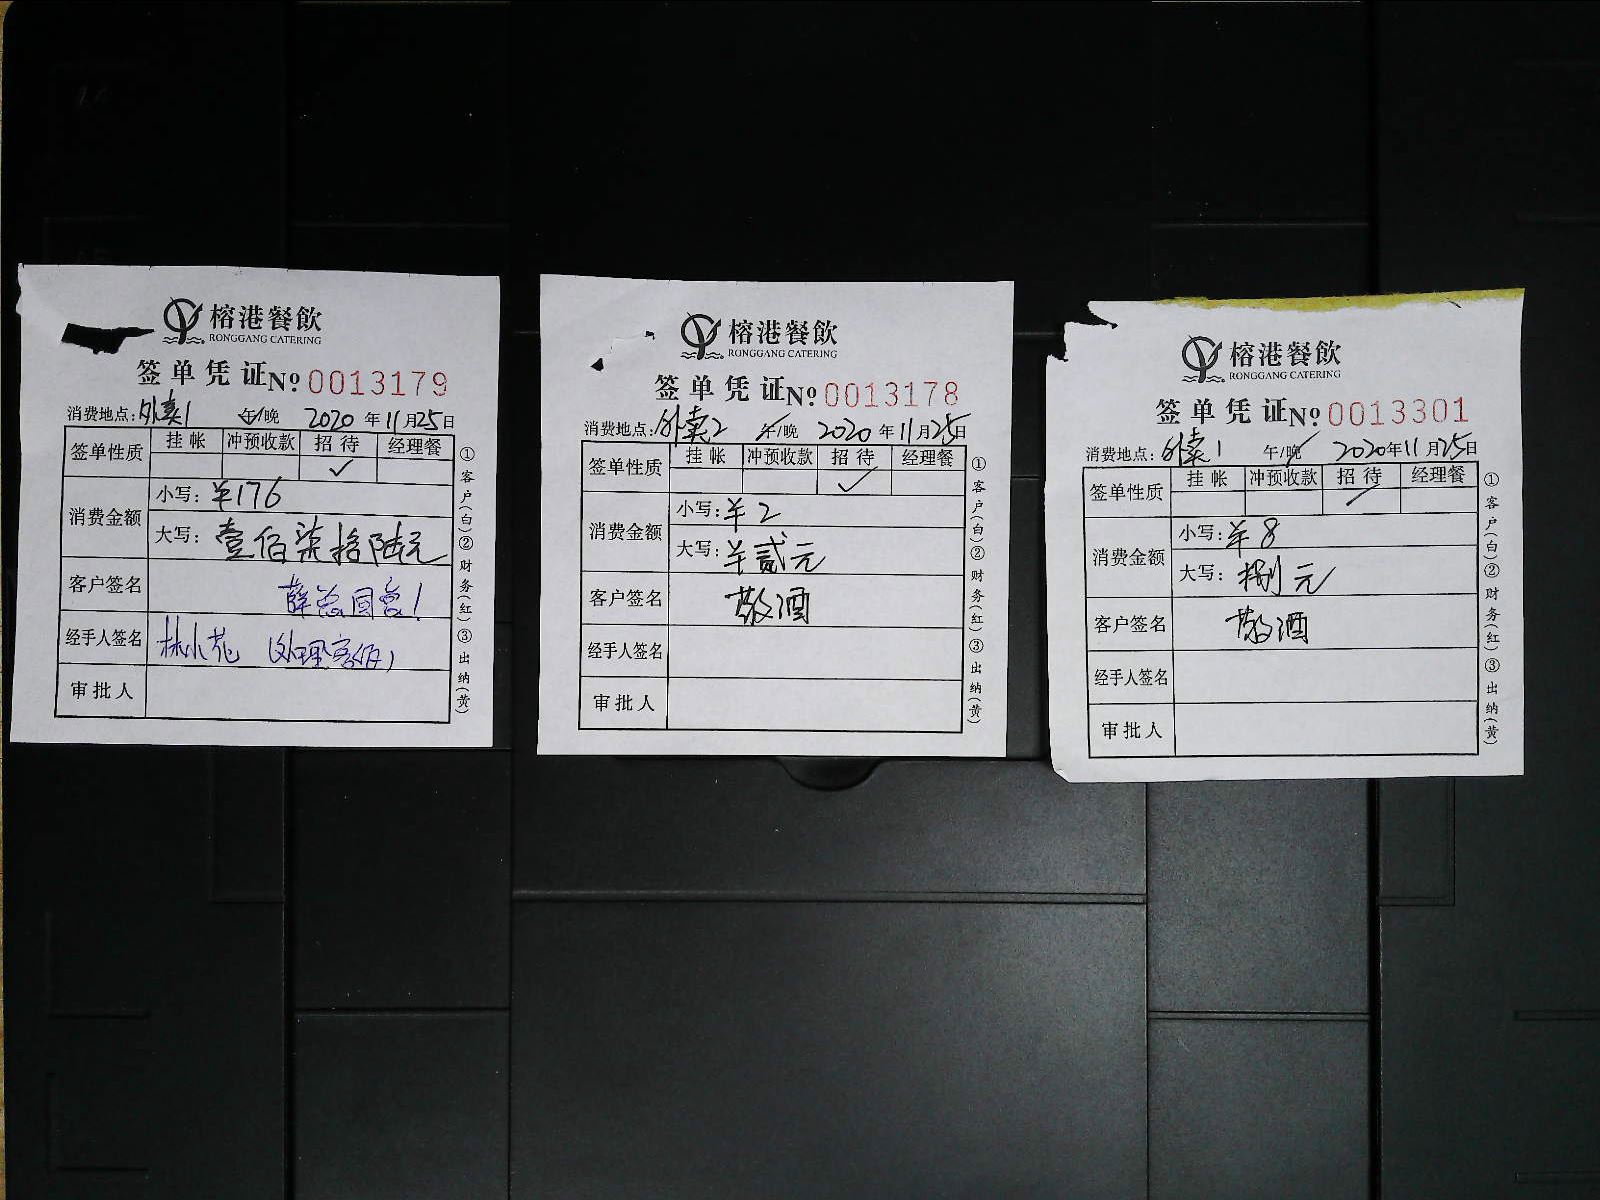 榕港餐飲
RONGGANG CATERING
签单凭证№0013179
消费地点:外卖1 午/晚 2020年11月25日
签单性质 挂帐 冲预收款 招待 经理餐
✓
消费金额 小写:¥176
大写:壹佰柒拾陆元
客户签名 薛总同意!
经手人签名 林小苑 (处理客诉)
审批人
①客户(白)②财务(红)③出纳(黄)
榕港餐飲
RONGGANG CATERING
签单凭证№0013178
消费地点:外卖2 午/晚 2020年11月25日
签单性质 挂帐 冲预收款 招待 经理餐
✓
消费金额 小写:¥2
大写:¥贰元
客户签名 敬酒
经手人签名
审批人
①客户(白)②财务(红)③出纳(黄)
榕港餐飲
RONGGANG CATERING
签单凭证№0013301
消费地点:外卖1 午/晚 2020年11月25日
签单性质 挂帐 冲预收款 招待 经理餐
消费金额 小写:¥8
大写:捌元
客户签名 敬酒
经手人签名
审批人
①客户(白)②财务(红)③出纳(黄)